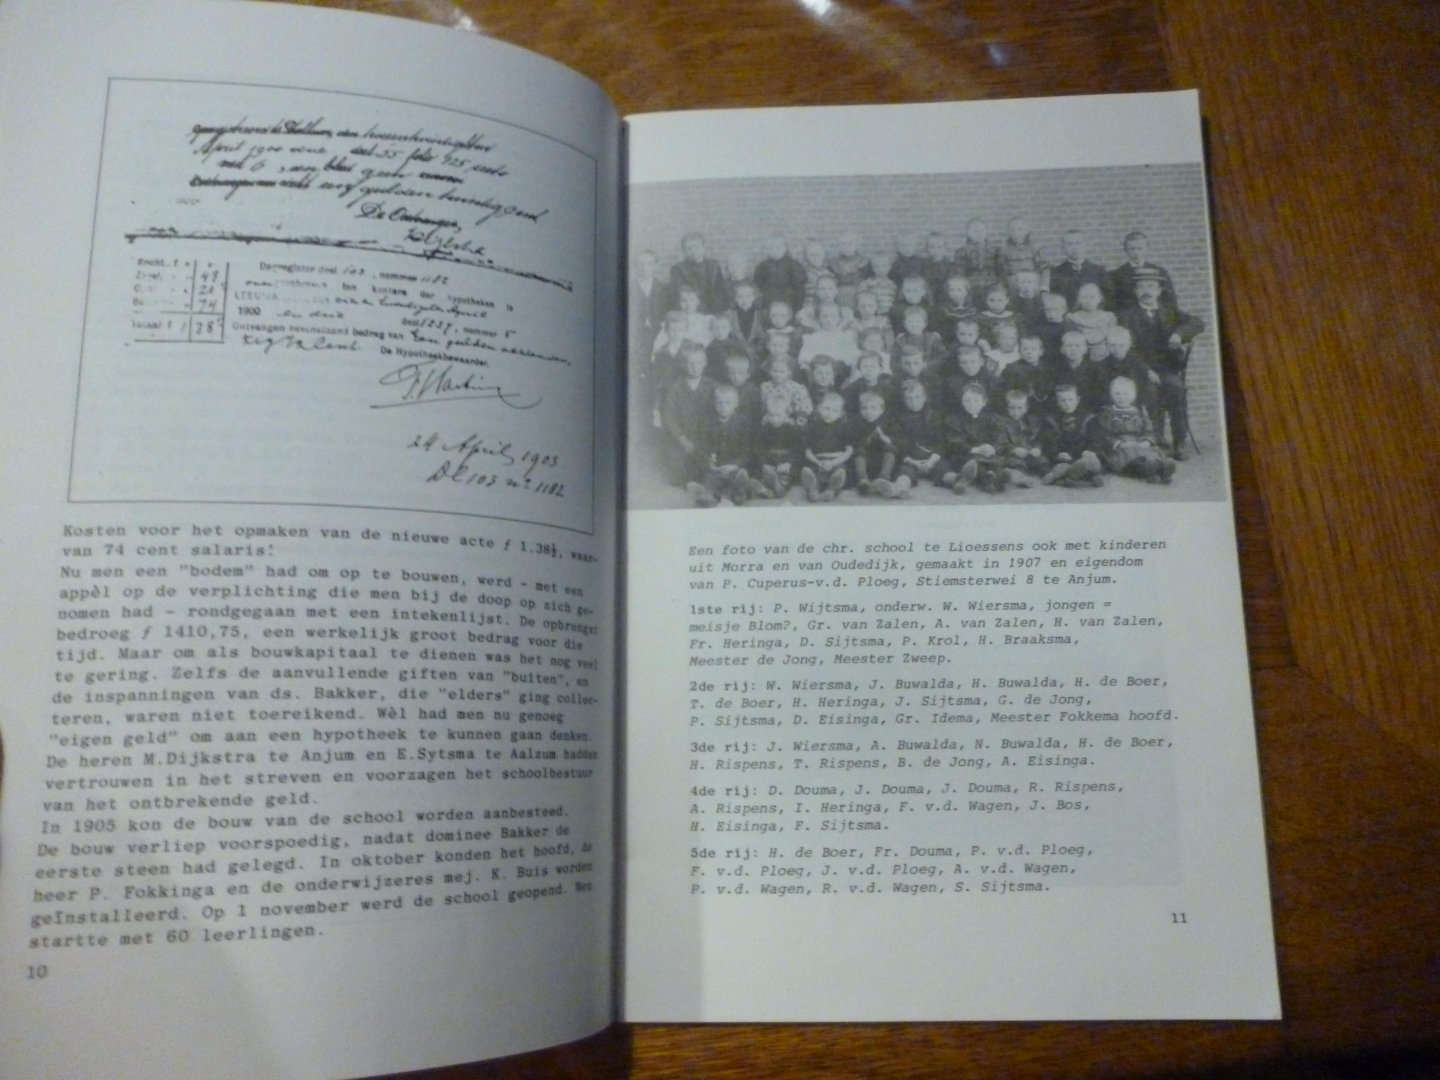 April 1900
Recht. f
43
Dagregister deel 103, nummer 1182
overgeschreven ten kantore der hypotheken te
21
LEEUWA
74
1900
deel 1227, nummer 5
Totaal f 1 38⁵
Ontvangen nevenstaand bedrag van Een gulden
Cent
De Hypotheekbewaarder,
24 April 1903
Dl 103 nº 1182
Kosten voor het opmaken van de nieuwe acte ƒ 1.38½, waar-
van 74 cent salaris!
Nu men een "bodem" had om op te bouwen, werd - met een
appèl op de verplichting die men bij de doop op zich ge-
nomen had - rondgegaan met een intekenlijst. De opbrengst
bedroeg ƒ 1410,75, een werkelijk groot bedrag voor die
tijd. Maar om als bouwkapitaal te dienen was het nog veel
te gering. Zelfs de aanvullende giften van "buiten", en
de inspanningen van ds. Bakker, die "elders" ging collec-
teren, waren niet toereikend. Wèl had men nu genoeg
"eigen geld" om aan een hypotheek te kunnen gaan denken.
De heren M.Dijkstra te Anjum en E.Sytsma te Aalzum hadden
vertrouwen in het streven en voorzagen het schoolbestuur
van het ontbrekende geld.
In 1905 kon de bouw van de school worden aanbesteed.
De bouw verliep voorspoedig, nadat dominee Bakker de
eerste steen had gelegd. In oktober konden het hoofd, de
heer P. Fokkinga en de onderwijzeres mej. K. Buis worden
geïnstalleerd. Op 1 november werd de school geopend. Men
startte met 60 leerlingen.
10
Een foto van de chr. school te Lioessens ook met kinderen
uit Morra en van Oudedijk, gemaakt in 1907 en eigendom
van P. Cuperus-v.d. Ploeg, Stiemsterwei 8 te Anjum.
1ste rij: P. Wijtsma, onderw. W. Wiersma, jongen =
meisje Blom?, Gr. van Zalen, A. van Zalen, H. van Zalen,
Fr. Heringa, D. Sijtsma, P. Krol, H. Braaksma,
Meester de Jong, Meester Zweep.
2de rij: W. Wiersma, J. Buwalda, H. Buwalda, H. de Boer,
T. de Boer, H. Heringa, J. Sijtsma, G. de Jong,
P. Sijtsma, D. Eisinga, Gr. Idema, Meester Fokkema hoofd.
3de rij: J. Wiersma, A. Buwalda, N. Buwalda, H. de Boer,
H. Rispens, T. Rispens, B. de Jong, A. Eisinga.
4de rij: D. Douma, J. Douma, J. Douma, R. Rispens,
A. Rispens, I. Heringa, F. v.d. Wagen, J. Bos,
H. Eisinga, F. Sijtsma.
5de rij: H. de Boer, Fr. Douma, P. v.d. Ploeg,
F. v.d. Ploeg, J. v.d. Ploeg, A. v.d. Wagen,
P. v.d. Wagen, R. v.d. Wagen, S. Sijtsma.
11